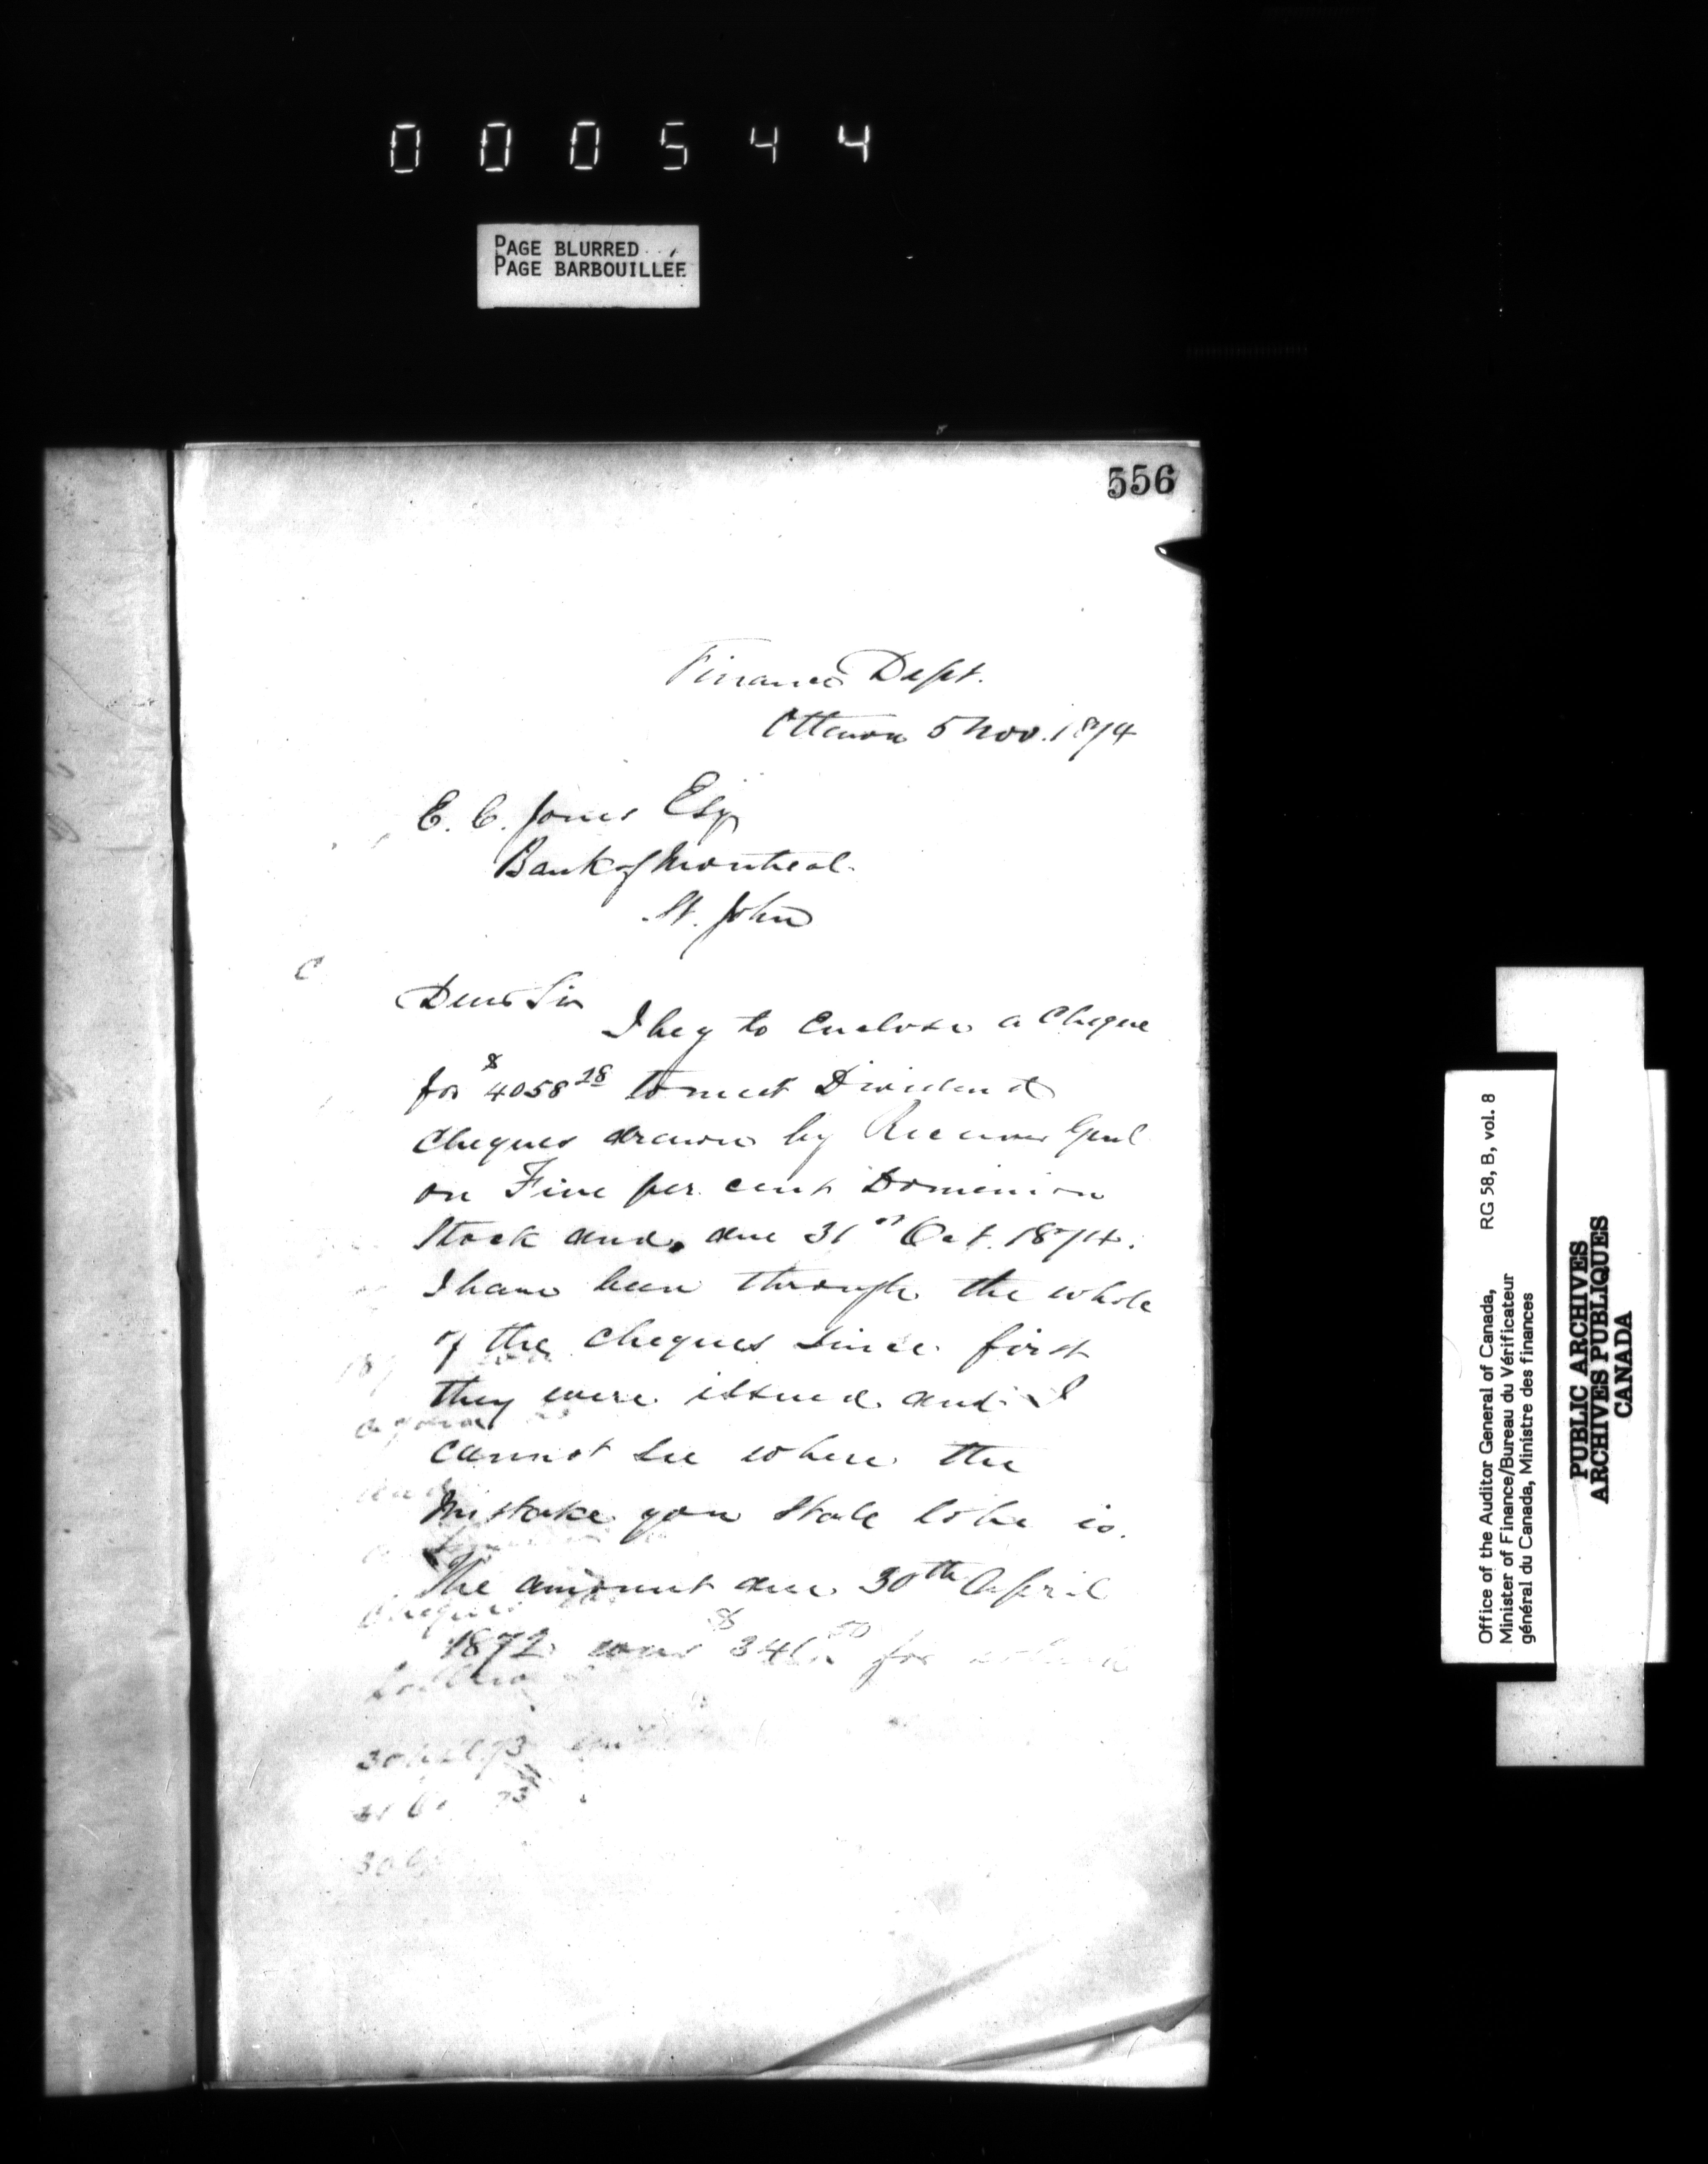 000544
PAGE BLURRED
PAGE BARBOUILLÉE
556
Finance Dept.
Ottawa 5 Nov. 1874
E. C. Jones Esqr
Bank of Montreal
St. John
Dear Sir
I beg to Enclose a Cheque
for $4058 28 to meet Dividend
Cheques drawn by Receiver Genl
on Five per cent Dominion
Stock and due 31st Oct. 1874.
I have been through the whole
of the Cheques since first
they were issued and I
cannot see where the
Mistake you State to be is.
The amount due 30th April
1872 was $ for which
Office of the Auditor General of Canada, RG 58, B, vol. 8
Minister of Finance/Bureau du Vérificateur
général du Canada, Ministre des finances
PUBLIC ARCHIVES
ARCHIVES PUBLIQUES
CANADA